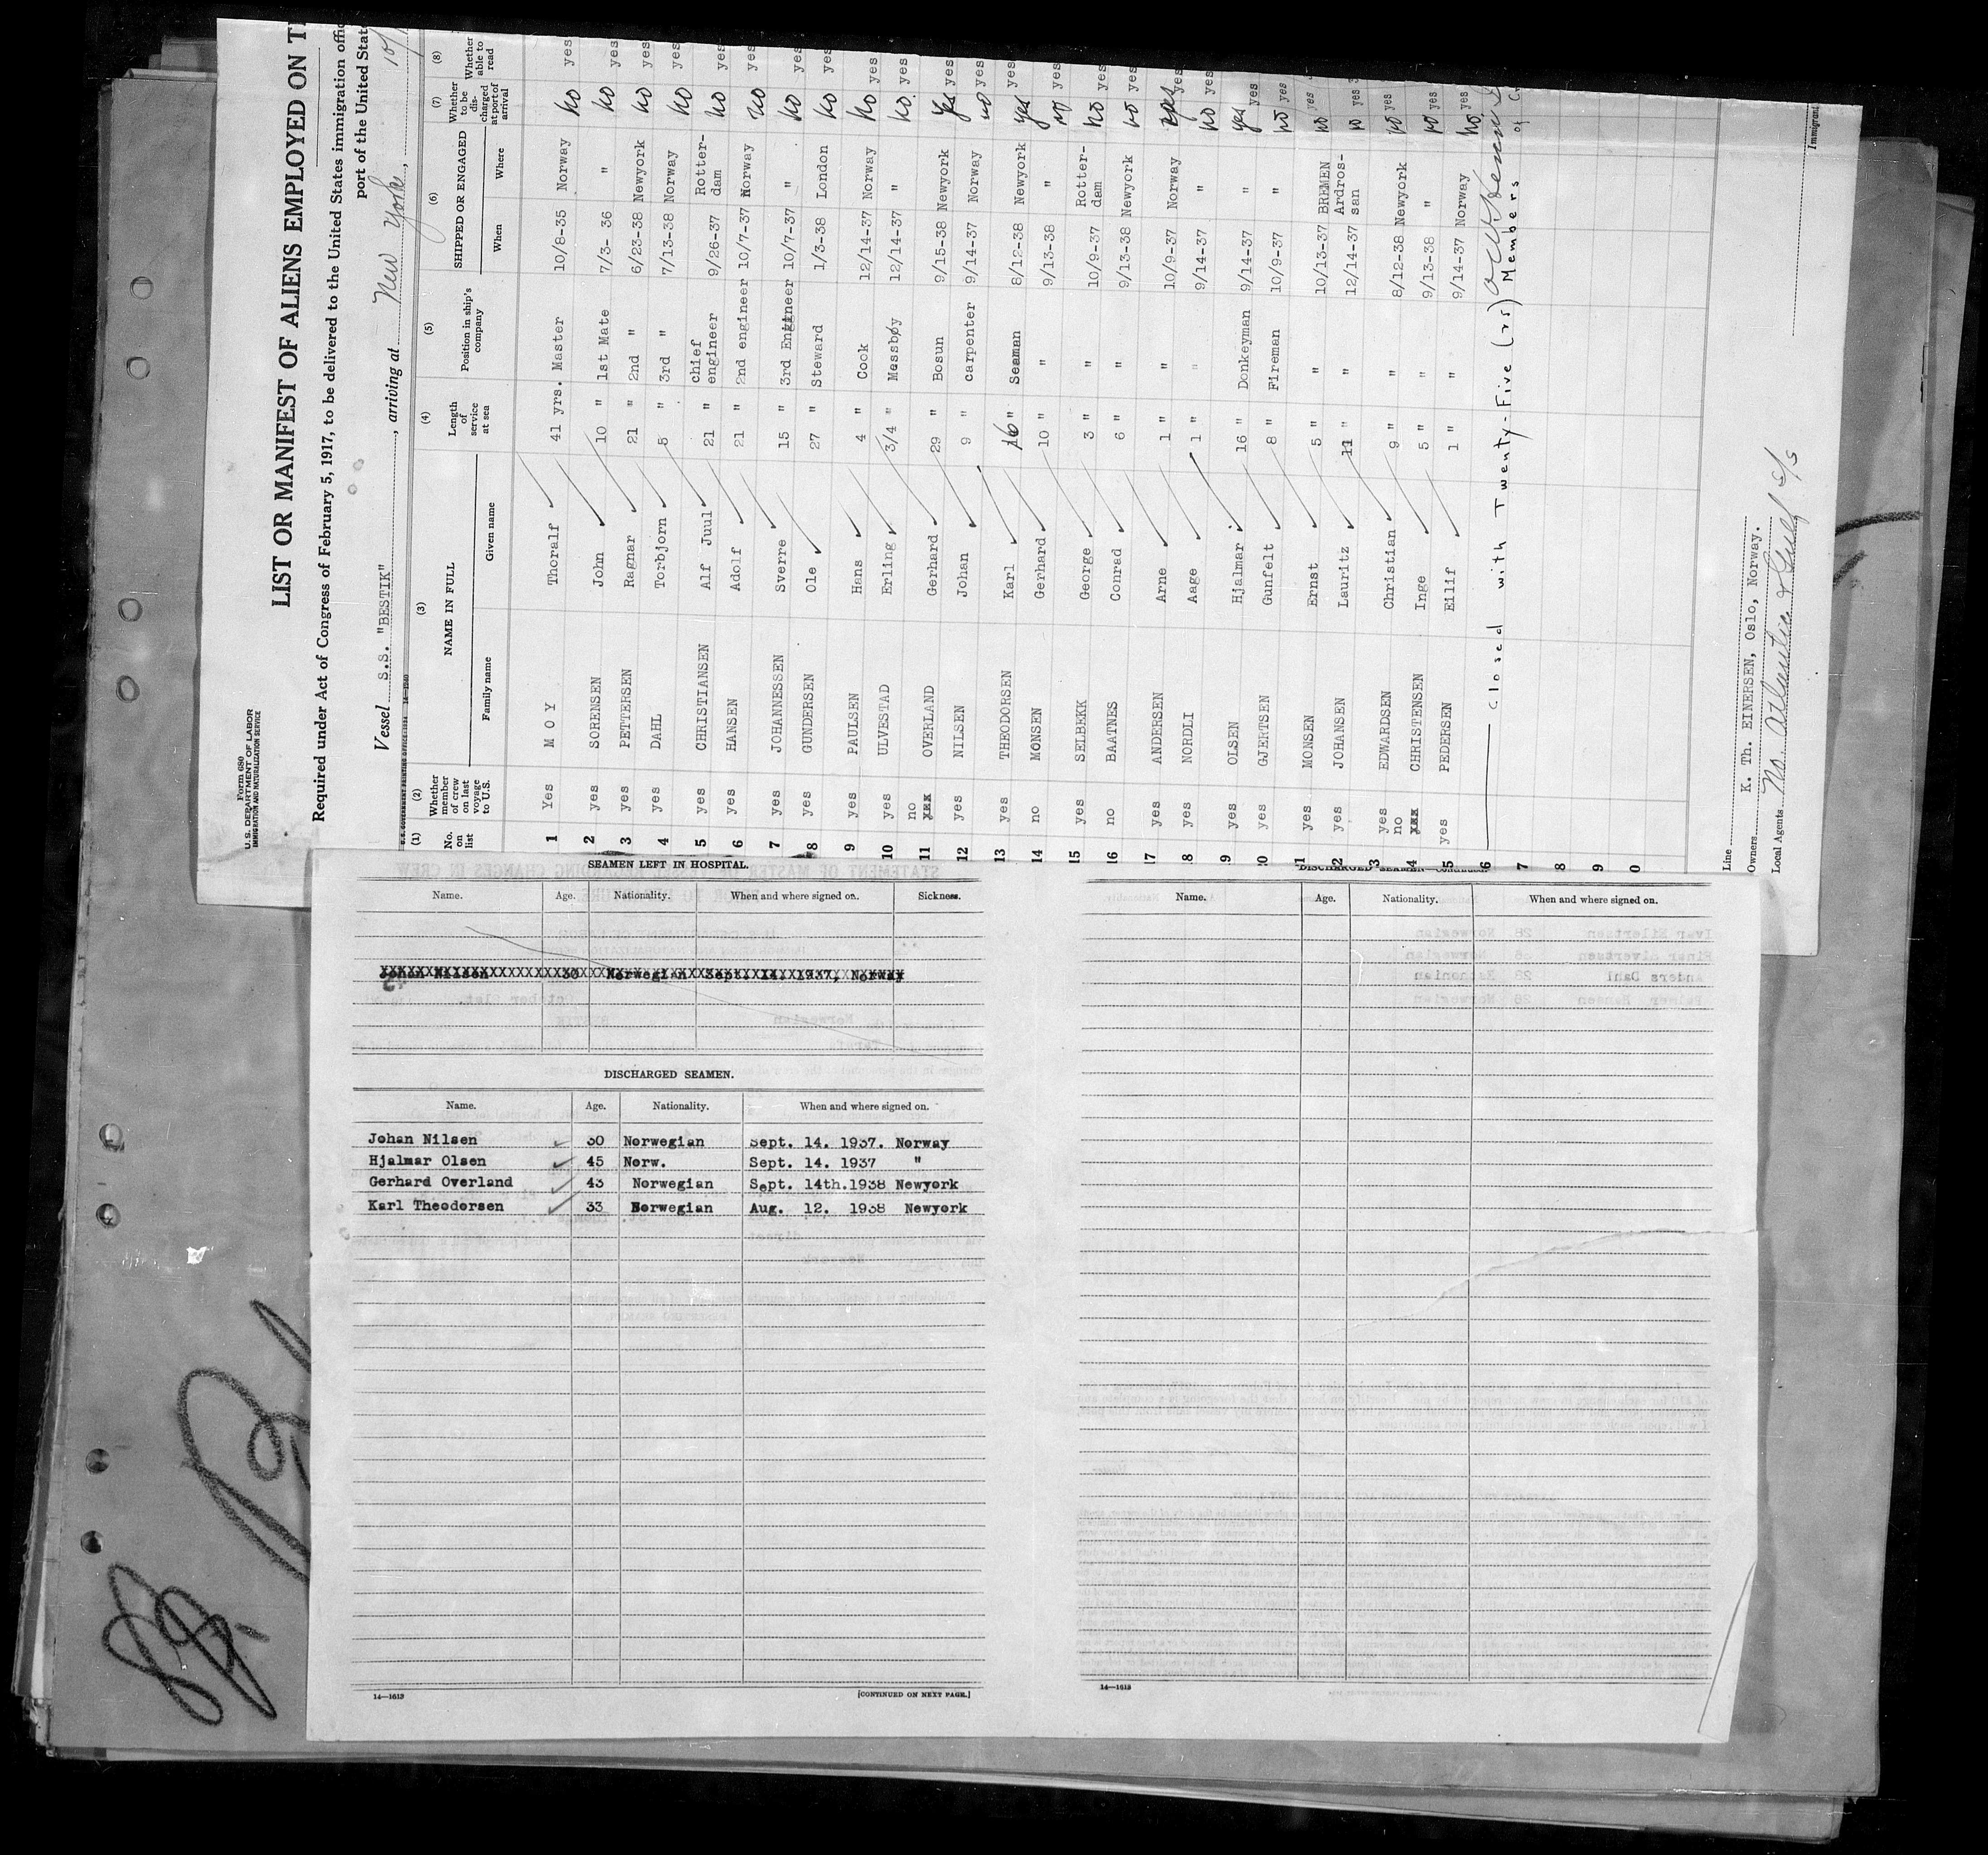 Form 680
U.S. DEPARTMENT OF LABOR
IMMIGRATION AND NATURALIZATION SERVICE
LIST OR MANIFEST OF ALIENS EMPLOYED ON
Required under Act of Congress of February 5, 1917, to be delivered to the United States immigration
port of the United
Vessel S.S. "BESTIK", arriving at New York,
(1) (2) (3) (4) (5) (6) (7) (8)
No. on list Whether member of crew on last voyage to U.S. NAME IN FULL Family name Given name Length of service at sea Position in ship's company SHIPPED OR ENGAGED When Where Whether to be discharged at port of arrival Whether able to read
1 Yes MOY Thoralf 41 yrs. Master 10/8-35 Norway No yes
2 yes SORENSEN John 10 " 1st Mate 7/3- 36 " No yes
3 yes PETTERSEN Ragnar 21 " 2nd " 6/23-38 Newyork No yes
4 yes DAHL Torbjorn 5 " 3rd " 7/13-38 Norway No yes
5 yes CHRISTIANSEN Alf Juul 21 " chief engineer 9/26-37 Rotter-dam No yes
6 yes HANSEN Adolf 21 " 2nd engineer 10/7-37 Norway No yes
7 yes JOHANNESSEN Sverre 15 " 3rd Engineer 10/7-37 " No yes
8 yes GUNDERSEN Ole 27 " Steward 1/3-38 London No yes
9 yes PAULSEN Hans 4 " Cook 12/14-37 Norway No yes
10 yes ULVESTAD Erling 3/4 " Messboy 12/14-37 " No. yes
11 no OVERLAND Gerhard 29 " Bosun 9/15-38 Newyork yes yes
12 yes NILSEN Johan 9 " carpenter 9/14-37 Norway no yes
13 yes THEODORSEN Karl 16 " Seaman 8/12-38 Newyork yes yes
14 no MONSEN Gerhard 10 " " 9/13-38 " no yes
15 yes SELBEKK George 3 " " 10/9-37 Rotter-dam No yes
16 no BAATNES Conrad 6 " " 9/13-38 Newyork no yes
17 yes ANDERSEN Arne 1 " " 10/9-37 Norway yes
8 yes NORDLI Aage 1 " " 9/14-37 " No yes
9 yes OLSEN Hjalmar 16 " Donkeyman 9/14-37 " yes yes
20 yes GJERTSEN Gunfelt 8 " Fireman 10/9-37 " no yes
1 yes MONSEN Ernst 5 " " 10/13-37 BREMEN no yes
2 yes JOHANSEN Lauritz 11 " " 12/14-37 Ardros-san no yes
3 yes EDWARDSEN Christian 9 " " 8/12-38 Newyork no yes
4 no CHRISTENSEN Inge 5 " " 9/13-38 " no yes
5 yes PEDERSEN Eilif 1 " " 9/14-37 Norway No yes
6 closed with Twenty-Five (25) Members of
7
8
9
0
Line
Owners K. Th. EINERSEN, Oslo, Norway.
Local Agents No. Atlantic & Gulf S/S
Immigrant
SEAMEN LEFT IN HOSPITAL.
Name. Age. Nationality. When and where signed on. Sickness.
Johan Nilsen 30 Norwegian Sept. 14. 1937, Norway
DISCHARGED SEAMEN.
Name. Age. Nationality. When and where signed on.
Johan Nilsen 30 Norwegian Sept. 14. 1937. Norway
Hjalmar Olsen 45 Norw. Sept. 14. 1937 "
Gerhard Overland 43 Norwegian Sept. 14th.1938 Newyork
Karl Theodorsen 33 Norwegian Aug. 12. 1938 Newyork
14—1613 [CONTINUED ON NEXT PAGE.]
DISCHARGED SEAMEN—Continued.
Name. Age. Nationality. When and where signed on.
14—1613